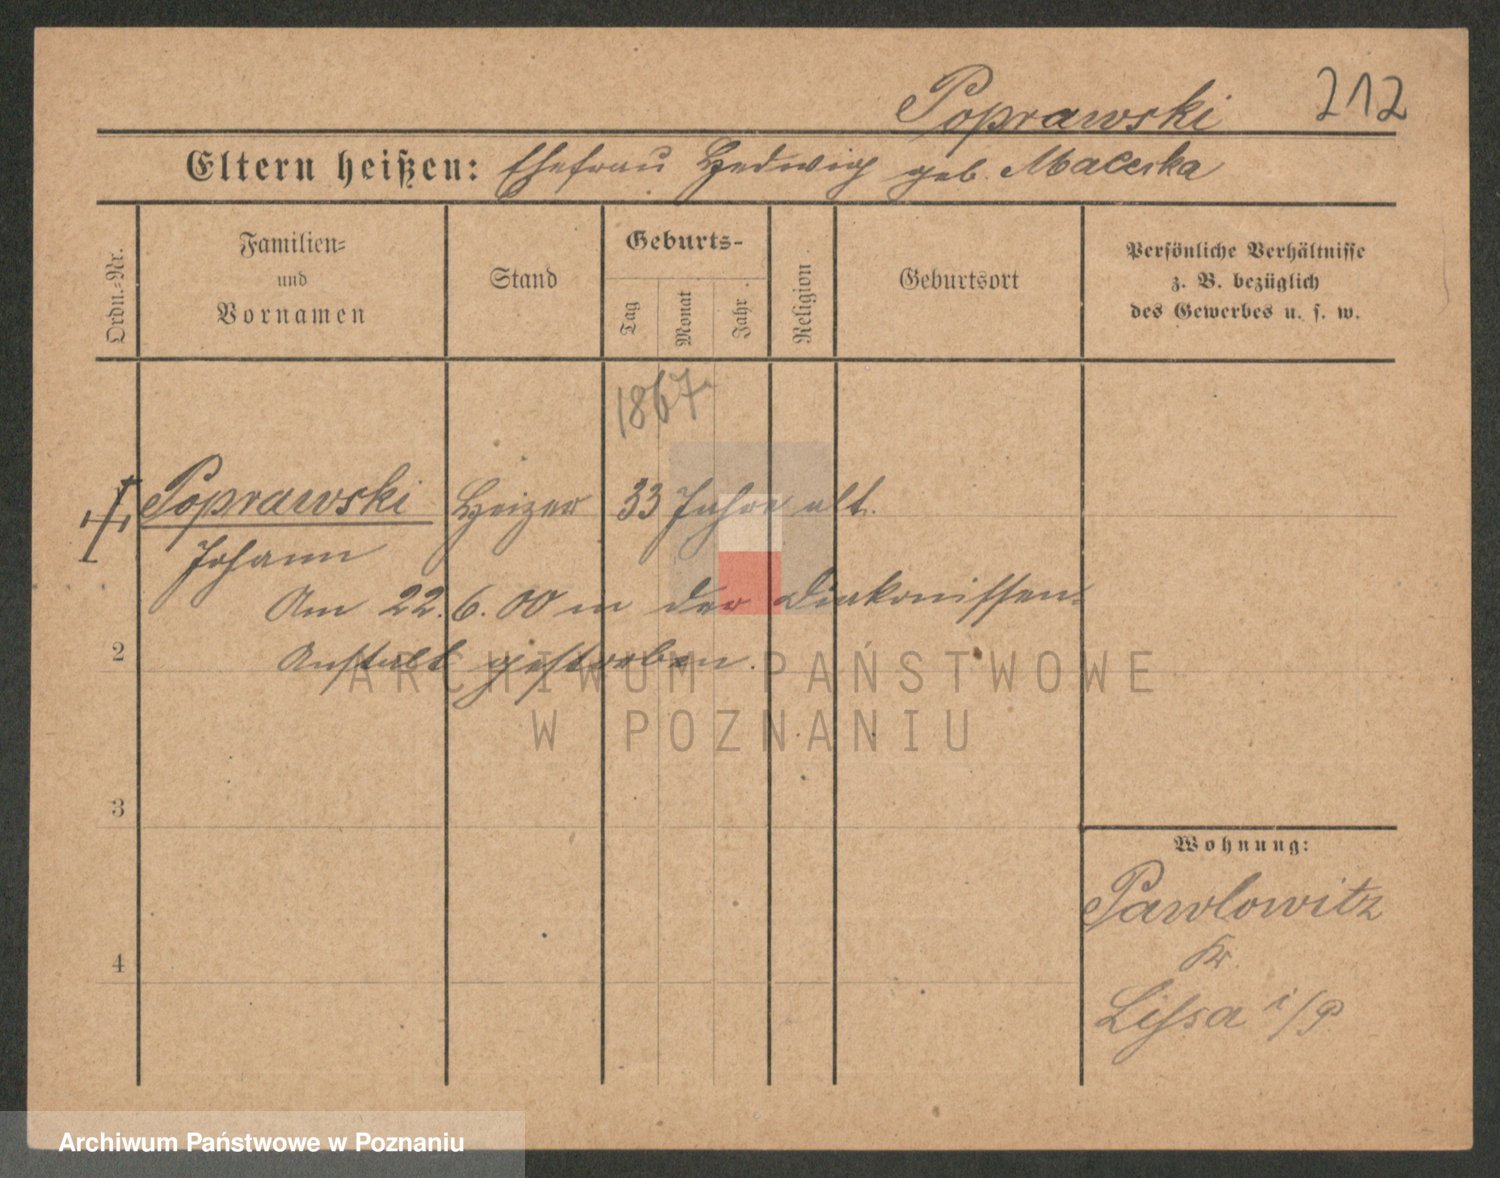 Poprawski
212
Eltern heißen: Ehefrau Hedwig geb.
Ordn.-Nr.
Familien-
und
Vornamen
Stand
Geburts-
Tag
Monat
Jahr
Religion
Geburtsort
Persönliche Verhältnisse
z. B. bezüglich
des Gewerbes u. s. w.
1867
Poprawski Heizer 33 Jahre alt.
Johann
Am 22.6.00 in der Diakonissen-
2
Anstalt gestorben.
ARCHIWUM PAŃSTWOWE
W POZNANIU
3
Wohnung:
Pawlowitz
Kr.
4
Lissa i/P
Archiwum Państwowe w Poznaniu